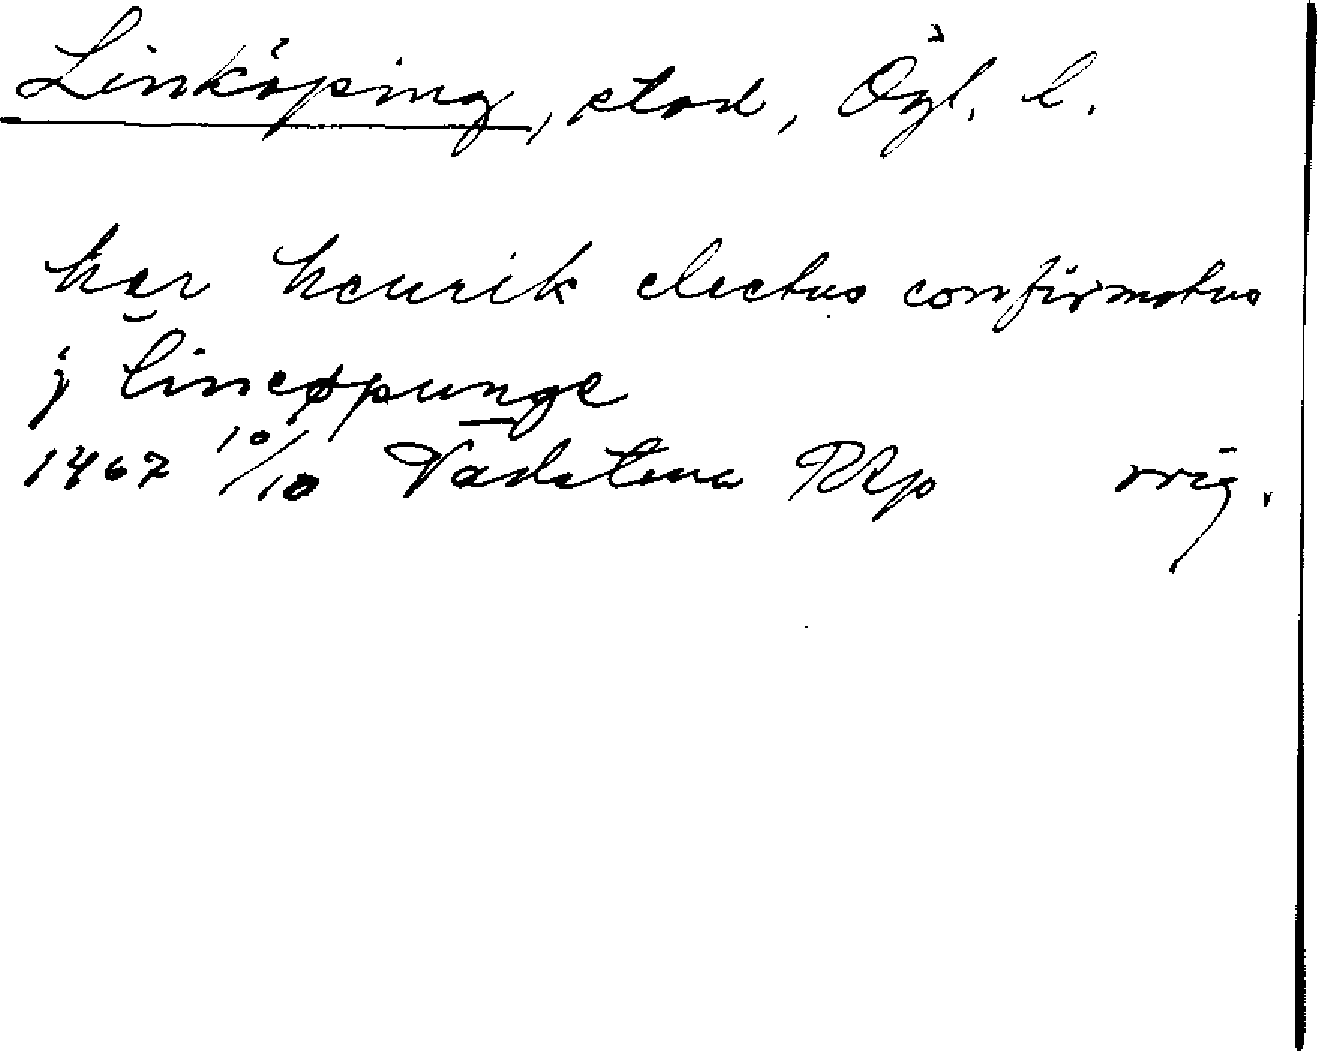 Linköping, stad, Ögl. l.
her henrik electus confirmatus
j lincøpunge
1467 10/10 Vadstena RAp orig.